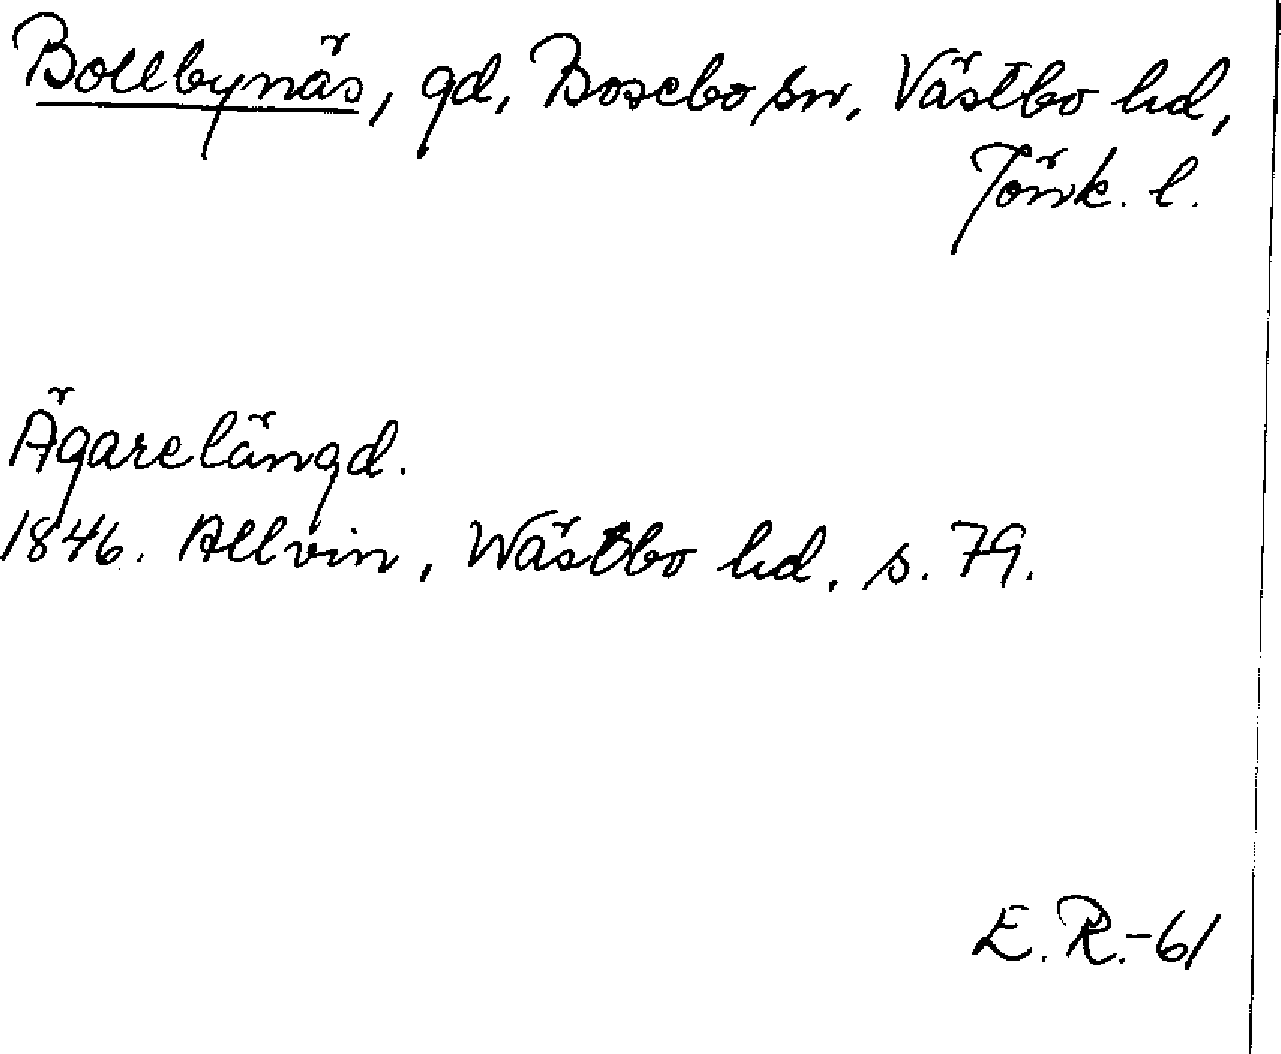 Bollbynäs, gd, Bosebo sn, Västbo hd,
Jönk. l.
Ägarelängd.
1846. Allvin, Wästbo hd, s. 79.
E. R.-61